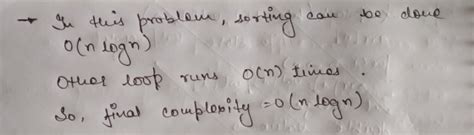 → In this problem, sorting can be done
O(n logn)
Other loop runs O(n) times.
So, final complexity = O(n logn)